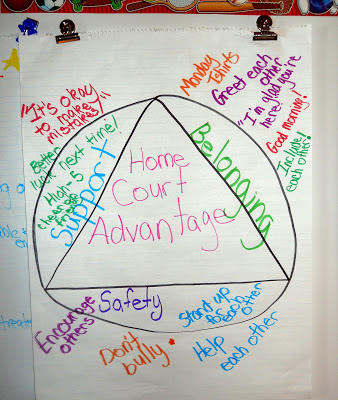 "It's okay
to make
mistakes!"
Better
luck next time!
High-5
Support
Monday
Tshirts
Greet each
other
"I'm glad you're
here!"
Good morning!
Include
each other!
Belonging
Home
Court
Advantage
Safety
Encourage
others
Don't
bully
Stand up
for each
other
Help
each other